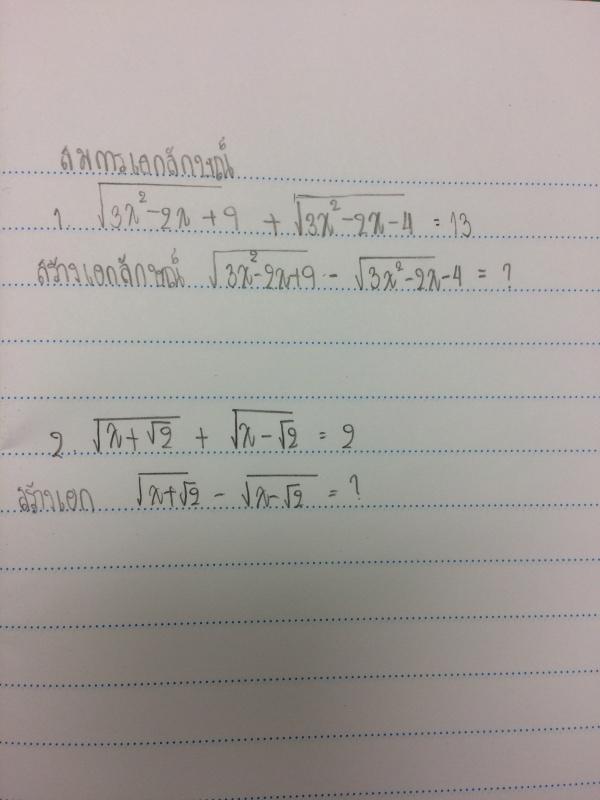 สมการเอกลักษณ์
1 √3x²-2x+9 + √3x²-2x-4 = 13
สร้างเอกลักษณ์ √3x²-2x+9 - √3x²-2x-4 = ?
2. √x+√2 + √x-√2 = 2
สร้างเอก √x+√2 - √x-√2 = ?